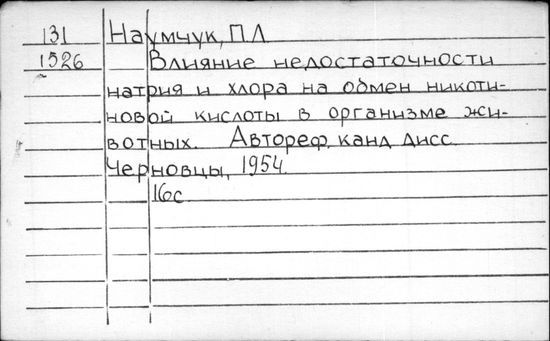 131 Наумчук, П Л
1526 Влияние недостаточности
натрия и хлора на обмен никоти-
новой кислоты в организме жи-
вотных. Автореф. канд дисс.
Черновцы, 1954.
16с